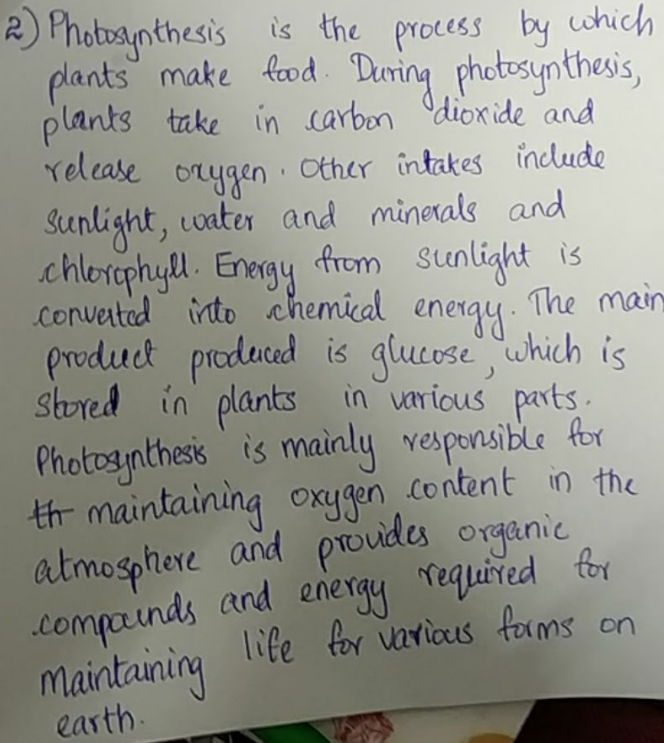 2) Photosynthesis is the process by which
plants make food. During photosynthesis,
plants take in carbon dioxide and
release oxygen. Other intakes include
sunlight, water and minerals and
chlorophyll. Energy from sunlight is
converted into chemical energy. The main
product produced is glucose, which is
stored in plants in various parts.
Photosynthesis is mainly responsible for
th maintaining oxygen content in the
atmosphere and provides organic
compounds and energy required for
maintaining life for various forms on
earth.